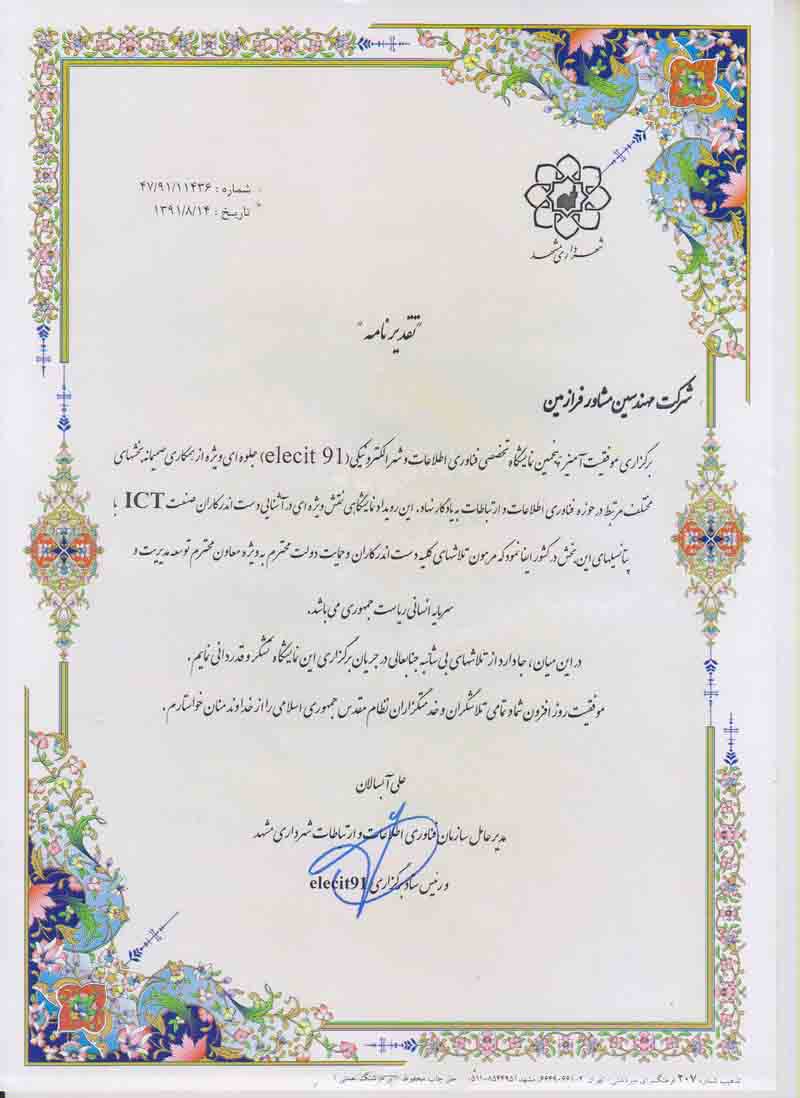 شماره : ۴۷/۹۱/۱۱۴۳۶
تاریخ : ۱۳۹۱/۸/۱۴
شهرداری مشهد
"تقدیرنامه"
شرکت مهندسین مشاور فرازمین
برگزاری موفقیت آمیز پنجمین نمایشگاه تخصصی فناوری اطلاعات و شهر الکترونیکی (elecit 91) جلوه ای ویژه از همکاری صمیمانه بخشهای
مختلف مرتبط در حوزه فناوری اطلاعات و ارتباطات به یادگار نهاد. این رویداد نمایشگاهی نقش ویژه ای در آشنایی دست اندرکاران صنعت ICT با
پتانسیلهای این بخش در کشور ایفا نمود که مرهون تلاشهای کلیه دست اندرکاران و حمایت دولت محترم به ویژه معاون محترم توسعه مدیریت و
سرمایه انسانی ریاست جمهوری می باشد.
در این میان، جا دارد از تلاشهای بی شائبه جنابعالی در جریان برگزاری این نمایشگاه تشکر و قدردانی نمایم.
موفقیت روز افزون شما و تمامی تلاشگران و خدمتگزاران نظام مقدس جمهوری اسلامی را از خداوند منان خواستارم.
علی آبسالان
مدیر عامل سازمان فناوری اطلاعات و ارتباطات شهرداری مشهد
و رئیس ستاد برگزاری elecit91
تذهیب شماره ۲۰۷ فرهنگسرای میردشتی - تهران ۲-۶۶۴۹۰۶۶۱ مشهد ۸۵۴۴۹۵۱-۰۵۱۱ حق چاپ محفوظ